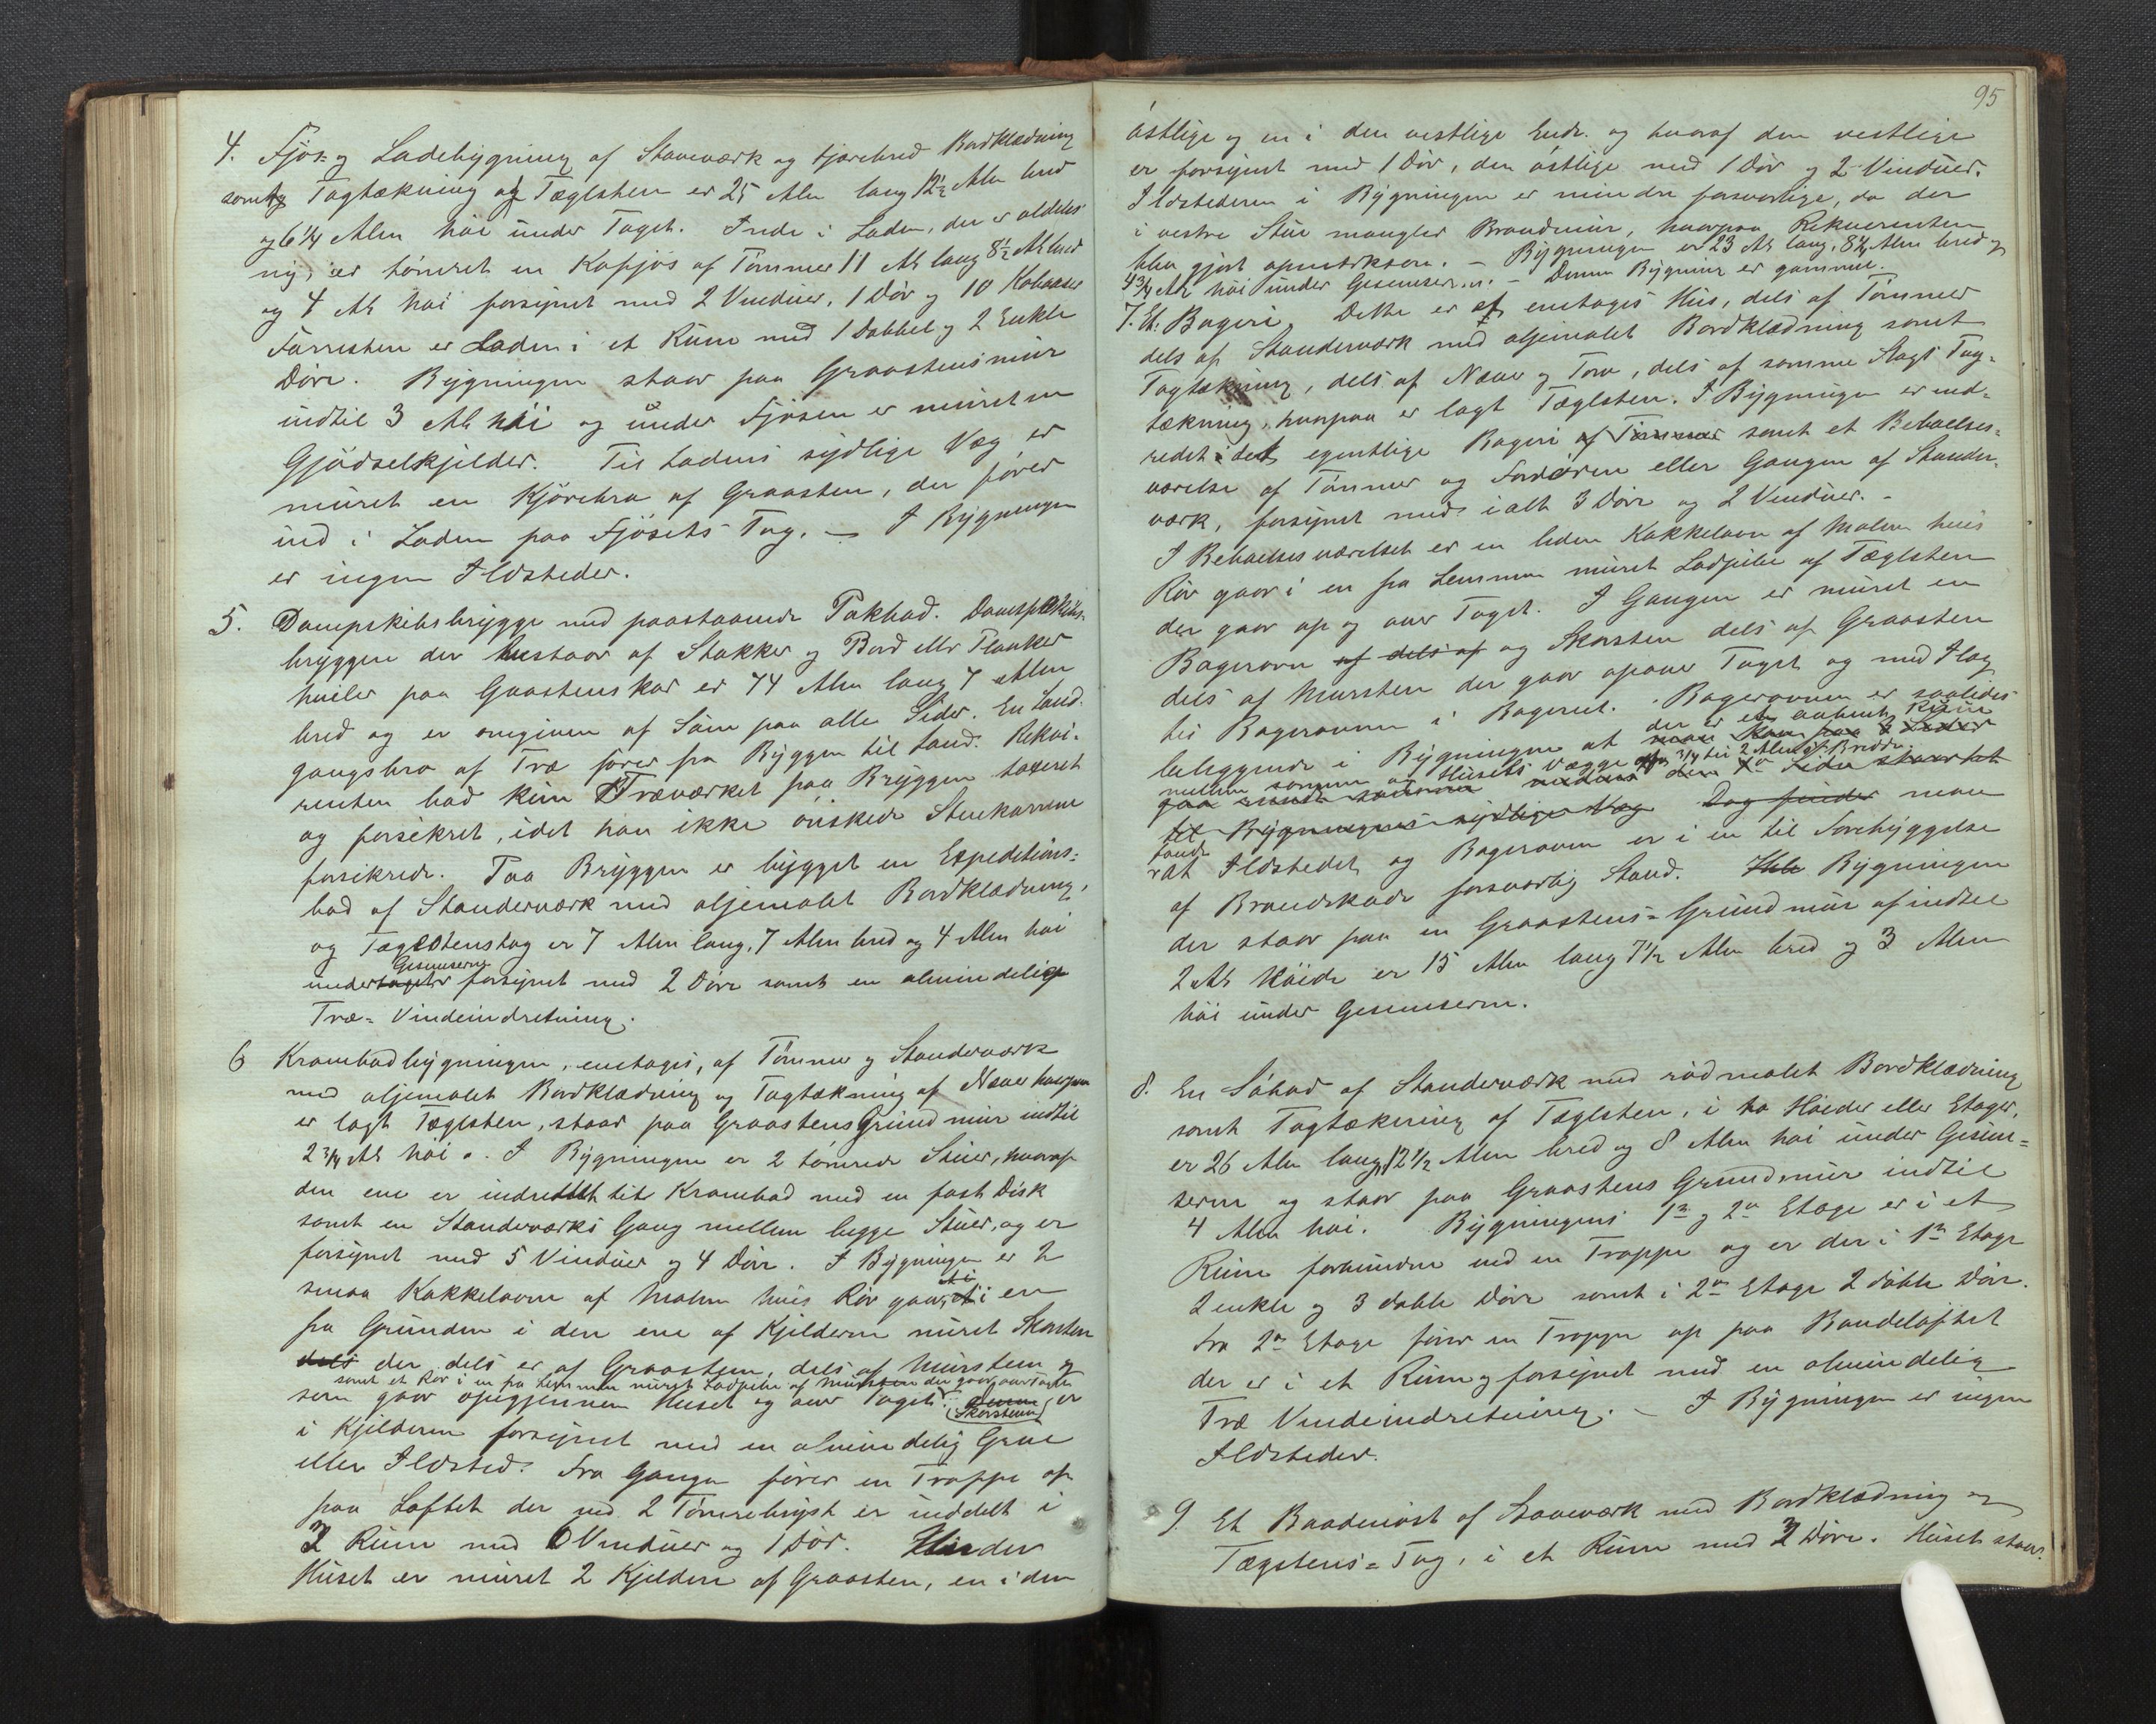 4. Fjøs- og Ladebygning af Stavværk og tjærebred Bordklædning
samt Tagtækning af Tæglsten er 25 Alen lang 12½ Alen bred
og 6¼ Alen høi under Taget. Inde i Laden, der er aldeles
ny, er tømret en Kofjøs af Tømmer 11 Al. lang 8½ Al. bred
og 4 Al. høi forsynet med 2 Vinduer, 1 Dør og 10 Kobaaser
Forresten er Laden i et Rum med 1 Dobbel og 2 Enkle
Døre. Bygningen staar paa Graastensmur
indtil 3 Al. høi og under Fjøsen er muret en
Gjødselkjelder. Til Ladens sydlige Væg er
muret en Kjørebro af Graasten, der fører
ind i Laden paa Fjøsets Tag. – I Bygningen
er ingen Ildsteder.
5. Dampskibsbrygge med paastaaende Pakbod. Dampskibs-
bryggen der bestaar af Stokker og Bord eller Planker
hviler paa Graastenskar er 74 Alen lang 7 Alen
bred og er omgiven af Søen paa alle Sider. En Land-
gangsbro af Træ fører fra Bryggen til Land. Rekvi-
renten bad kun Træværket paa Bryggen taxeret
og forsikret, idet han ikke ønskede Stenkarrene
forsikrede. Paa Bryggen er bygget en Expeditions-
bod af Standerværk med oljemalet Bordklædning,
og Tæglstenstag er 7 Alen lang, 7 Alen bred og 4 Alen høi
Gesimserne
under taget forsynet med 2 Døre samt en almindelig
Træ- Vindeindretning.
6 Krambodbygningen, enetages, af Tømmer og Standerværk
med oljemalet Bordklædning og Tagtækning af Næver hvorpaa
er lagt Tæglsten, staar paa Graastens Grundmur indtil
2¾ Al. høi. I Bygningen er 2 tømrede Stuer, hvoraf
den ene er indrettet til Krambod med en fast Disk
samt en Standerværks Gang mellem begge Stuer, og er
forsynet med 5 Vinduer og 4 Døre. I Bygningen er 2
smaa Kakkelovne af Malm hvis Rør gaar i en
fra Grunden i den ene af Kjelderne muret Skorsten
dels der dels er af Graasten, dels af Mursten og
samt et Rør i en fra Lemmen muret Ladpibe af Mursten der gaar over Taget
som gaar opigjennem Huset og over Taget. denne (Skorstenen) er
i Kjelderen forsynet med en almindelig Grue
eller Ildsted. Fra Gangen fører en Trappe op
paa Loftet der ved 2 Tømrebryst er inddelt i
3 Rum med 6 Vinduer og 1 Dør. Under
Huset er muret 2 Kjeldere af Graasten, en i den
95
østlige og en i den vestlige Ende. og hvoraf den vestlige
er forsynet med 1 Dør, den østlige med 1 Dør og 2 Vinduer.
Ildstederne i Bygningen er mindre forsvarlige, da der
i vestre Stue mangler Brandmur, hvorpaa Rekvirenten
blev gjort opmærksom. – Bygningen er 23 Al. lang, 8½ Alen bred og
4¾ Al. høi under Gesimserne. – Denne Bygning er gammel.
7. Et Bageri, Dette er et enetages Hus, dels af Tømmer
dels af Standerværk med oljemalet Bordklædning samt
Tagtækning, dels af Næver og Torv, dels af samme Slags Tag-
tækning, hvorpaa er lagt Tæglsten. I Bygningen er ind-
redet det egentlige Bageri af Tømmer samt et Beboelses-
værelse af Tømmer og Fordøren eller Gangen af Stander-
værk, forsynet med ialt 3 Døre og 2 Vinduer. –
I Beboelsesværelset er en liden Kakkelovn af Malm hvis
Rør gaar i en fra Lemmen muret Ladpibe af Tæglsten
der gaar op og over Taget. I Gangen er muret en
Bagerovn af dels af og Skorsten dels af Graasten
dels af Mursten der gaar opover Taget og med Ilæg
til Bagerovnen i Bageriet. Bagerovnen er saaledes
der er et aabent Rum
beliggende i Bygningen at man kan paa 3 Sider
mellem samme og Husets Vægge af ¾ til 2 Alens Bredde
gaa rundt samme medens den 4de Side støder tæt
til Bygningens sydlige Væg Dog finder man
at Ildstedet og Bagerovnen er i en til Forebyggelse
af Brandskade forsvarlig Stand. Hele Bygningen
der staar paa en Graastens- Grundmur af indtil
2 Al. Høide er 15 Alen lang 7½ Alen bred og 3 Alen
høi under Gesimserne.
8. En Søbod af Standerværk med rødmalet Bordklædning
samt Tagtækning af Tæglsten, i to Høider eller Etager,
er 26 Alen lang, 12½ Alen bred og 8 Alen høi under Gesim-
serne og staar paa Graastens Grundmur indtil
4 Alen høi. Bygningens 1ste og 2den Etage er i et
Rum forbundne ved en Trappe og er der i 1ste Etage
2 enkle og 3 doble Døre samt i 2den Etage 2 doble Døre.
Fra 2den Etage fører en Trappe op paa Bondeloftet
der er i et Rum og forsynet med en almindelig
Træ Vindeindretning. – I Bygningen er ingen
Ildsteder.
9. Et Baadenøst af Stavværk med Bordklædning og
Tæglstens- Tag, i et Rum med 2 Døre. Huset staar